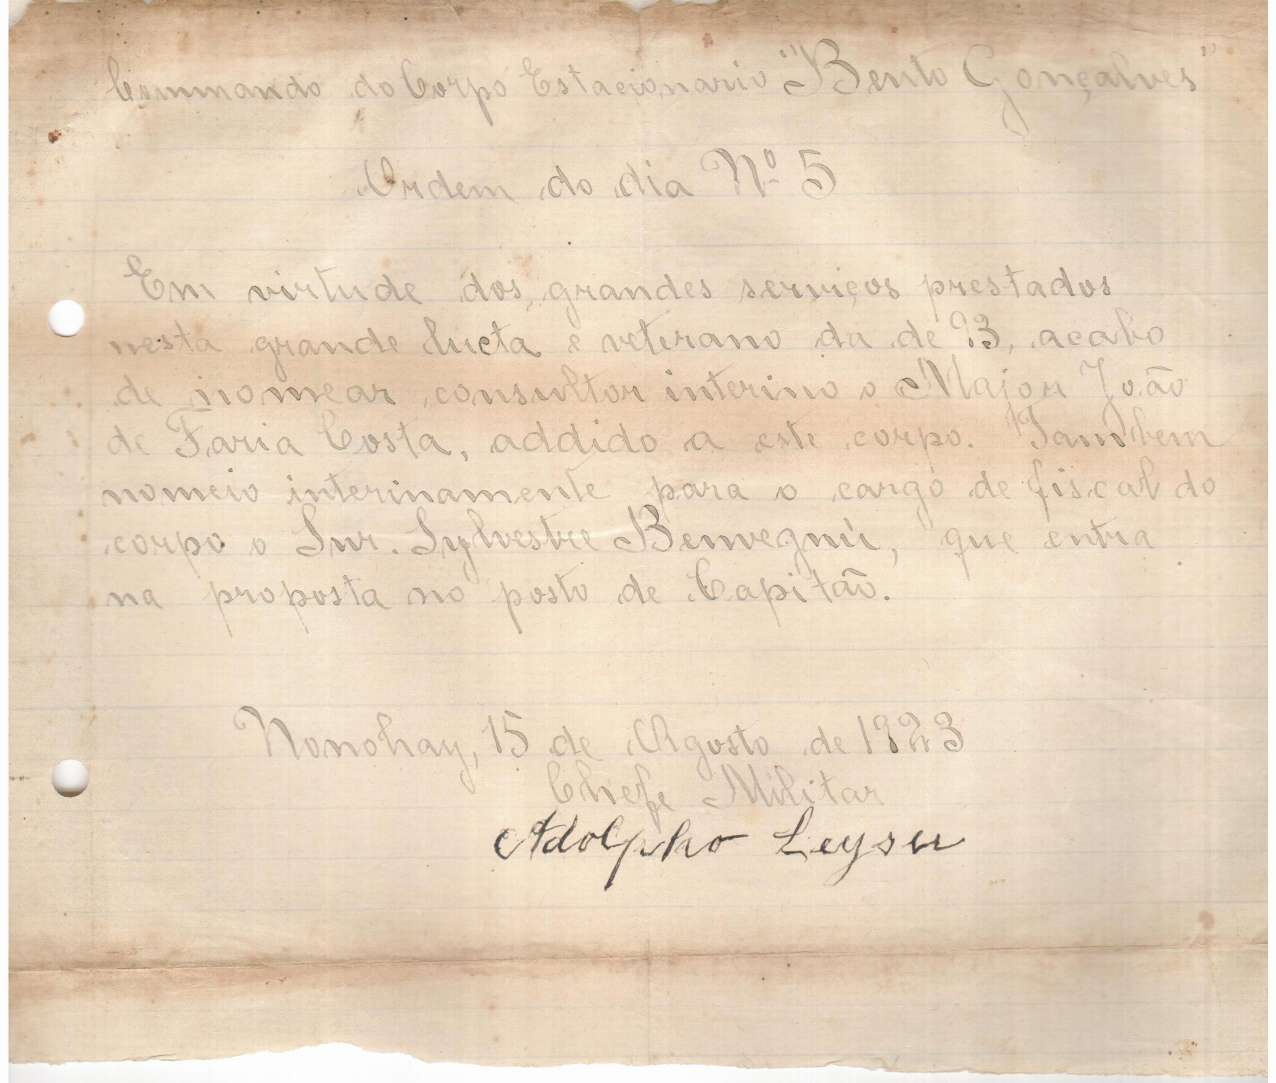 Commando do Corpo Estacionario "Bento Gonçalves"
Ordem do dia Nº 5
Em virtude dos grandes serviços prestados
nesta grande lucta e veterano da de 93, acabo
de nomear consultor interino o Major João
de Faria Costa, addido a este corpo. Tambem
nomeio interinamente para o cargo de fiscal do
corpo o Snr. Sylvestre Benvegnú, que entra
na proposta no posto de Capitão.
Nonohay, 15 de Agosto de 1923
Chefe Militar
Adolpho Leyser